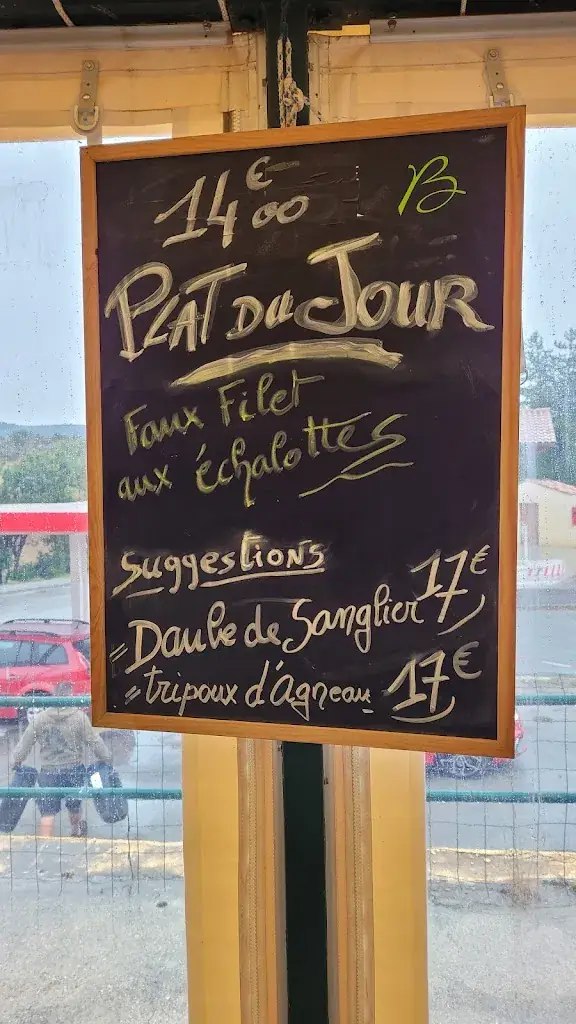 14€00
B
PLAT DU JOUR
Faux Filet
aux échalottes
Suggestions
= Daube de Sanglier 17€
= tripoux d'Agneau 17€